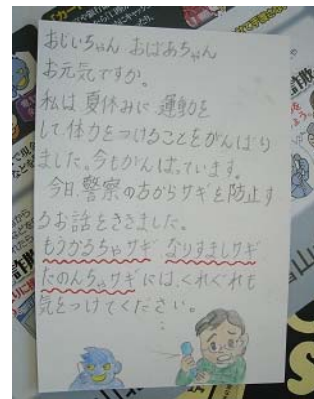 おじいちゃん おばあちゃん
お元気ですか。
私は夏休みに運動を
して体力をつけることをがんばり
ました。今もがんばっています。
今日、警察の方からサギを防止す
るお話をききました。
もうかるちゃサギ なりすましサギ
たのんちゃサギには、くれぐれも
気をつけてください。